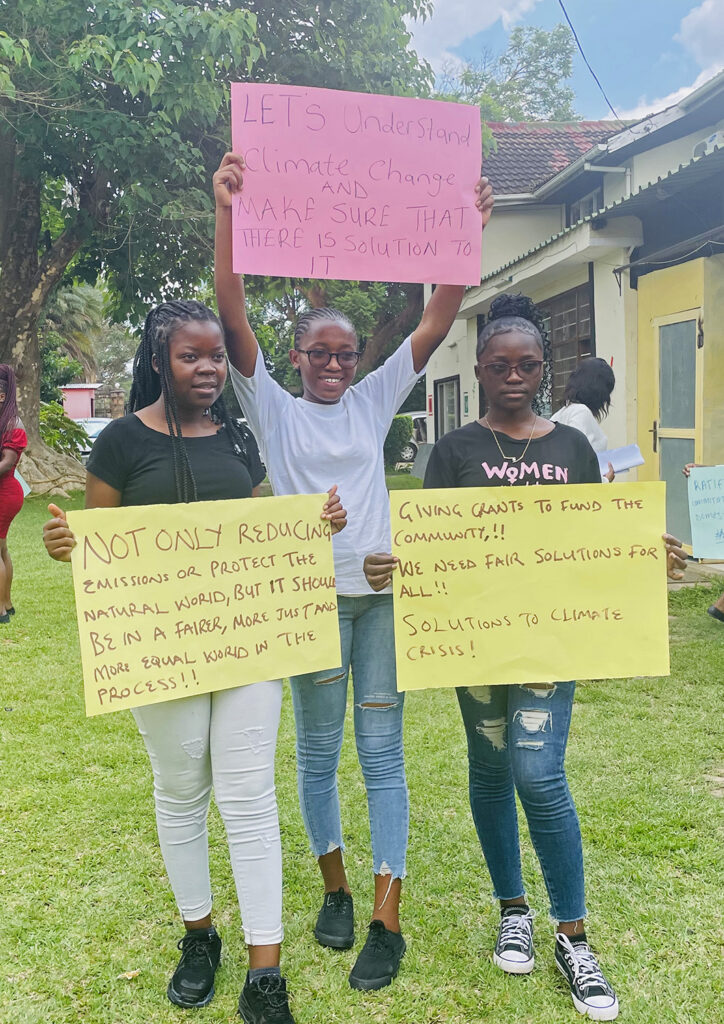 LET'S Understand
Climate Change
AND
MAKE SURE THAT
THERE IS SOLUTION TO
IT
NOT ONLY REDUCING
EMISSIONS OR PROTECT THE
NATURAL WORLD, BUT IT SHOULD
BE IN A FAIRER, MORE JUST AND
MORE EQUAL WORLD IN THE
PROCESS!!
WOMEN
GIVING GRANTS TO FUND THE
COMMUNITY,!!
WE NEED FAIR SOLUTIONS FOR
ALL!!
SOLUTIONS TO CLIMATE
CRISIS!